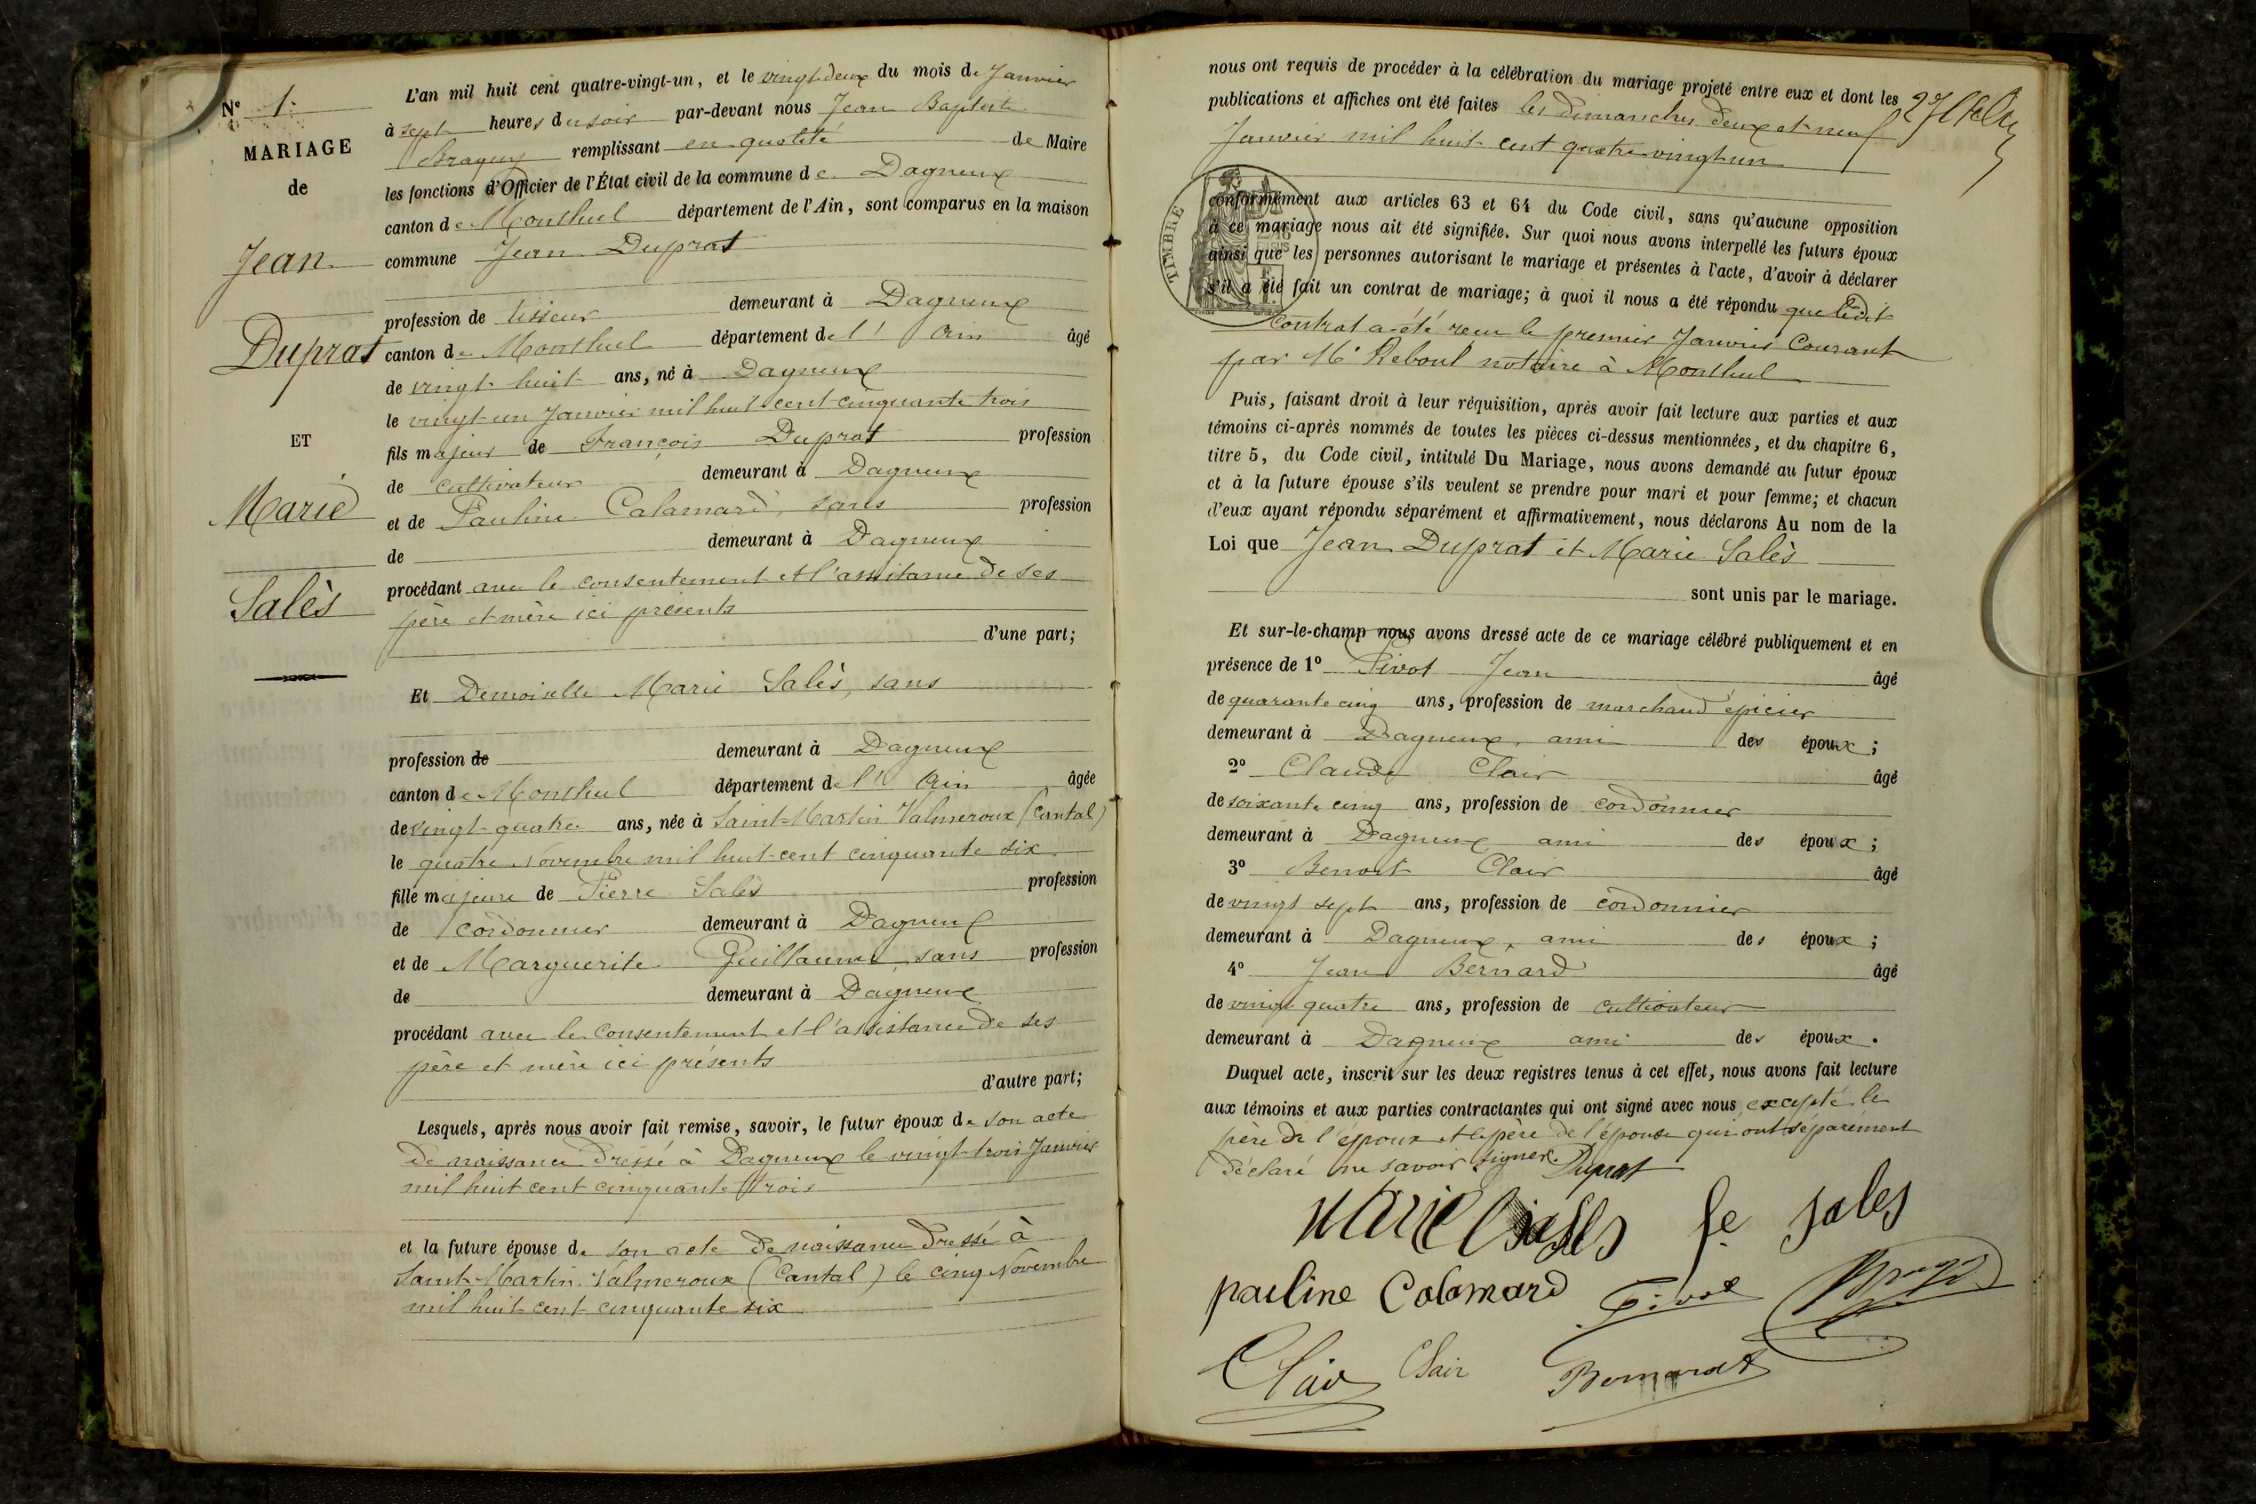 N° 1.
MARIAGE
de
Jean
Duprat
ET
Marie
Salès
L'an mil huit cent quatre-vingt-un, et le vingt-deux du mois de Janvier
à sept heures du soir par-devant nous Jean Baptiste
Braguy remplissant en qualité de Maire
les fonctions d'Officier de l'État civil de la commune de Dagneux
canton de Montluel département de l'Ain, sont comparus en la maison
commune Jean Duprat
profession de tisseur demeurant à Dagneux
canton de Montluel département de l'Ain âgé
de vingt-huit ans, né à Dagneux
le vingt-un Janvier mil huit cent cinquante trois
fils majeur de François Duprat profession
de cultivateur demeurant à Dagneux
et de Pauline Calamard, sans profession
de demeurant à Dagneux
procédant avec le consentement et l'assistance de ses
père et mère ici présents
d'une part;
Et Demoiselle Marie Salès, sans
profession de demeurant à Dagneux
canton de Montluel département de l'Ain âgée
de vingt-quatre ans, née à Saint-Martin Valmeroux (Cantal)
le quatre Novembre mil huit cent cinquante six
fille majeure de Pierre Salès profession
de cordonnier demeurant à Dagneux
et de Marguerite Guillaume, sans profession
de demeurant à Dagneux
procédant avec le consentement et l'assistance de ses
père et mère ici présents
d'autre part;
Lesquels, après nous avoir fait remise, savoir, le futur époux de son acte
de naissance dressé à Dagneux le vingt-trois Janvier
mil huit cent cinquante trois
et la future épouse de son acte de naissance dressé à
Saint-Martin Valmeroux (Cantal) le cinq Novembre
mil huit cent cinquante six
nous ont requis de procéder à la célébration du mariage projeté entre eux et dont les
publications et affiches ont été faites les dimanches deux et neuf
Janvier mil huit cent quatre vingt un
TIMBRE
conformément aux articles 63 et 64 du Code civil, sans qu'aucune opposition
à ce mariage nous ait été signifiée. Sur quoi nous avons interpellé les futurs époux
ainsi que les personnes autorisant le mariage et présentes à l'acte, d'avoir à déclarer
s'il a été fait un contrat de mariage; à quoi il nous a été répondu que ledit
contrat a été reçu le premier Janvier Courant
par Me Reboul notaire à Montluel
Puis, faisant droit à leur réquisition, après avoir fait lecture aux parties et aux
témoins ci-après nommés de toutes les pièces ci-dessus mentionnées, et du chapitre 6,
titre 5, du Code civil, intitulé Du Mariage, nous avons demandé au futur époux
et à la future épouse s'ils veulent se prendre pour mari et pour femme; et chacun
d'eux ayant répondu séparément et affirmativement, nous déclarons Au nom de la
Loi que Jean Duprat et Marie Salès
sont unis par le mariage.
Et sur-le-champ nous avons dressé acte de ce mariage célébré publiquement et en
présence de 1° Pivot Jean âgé
de quarante cinq ans, profession de marchand épicier
demeurant à Dagneux, ami des époux;
2° Claude Clair âgé
de soixante cinq ans, profession de cordonnier
demeurant à Dagneux ami des époux;
3° Benoit Clair âgé
de vingt sept ans, profession de cordonnier
demeurant à Dagneux, ami des époux;
4° Jean Bernard âgé
de vingt quatre ans, profession de cultivateur
demeurant à Dagneux ami des époux.
Duquel acte, inscrit sur les deux registres tenus à cet effet, nous avons fait lecture
aux témoins et aux parties contractantes qui ont signé avec nous, excepté le
père de l'époux et le père de l'épouse qui ont séparément
déclaré ne savoir signer. Duprat
Marie Salès fe sales
pauline Calamard Pivot
Clair Clair Bernard